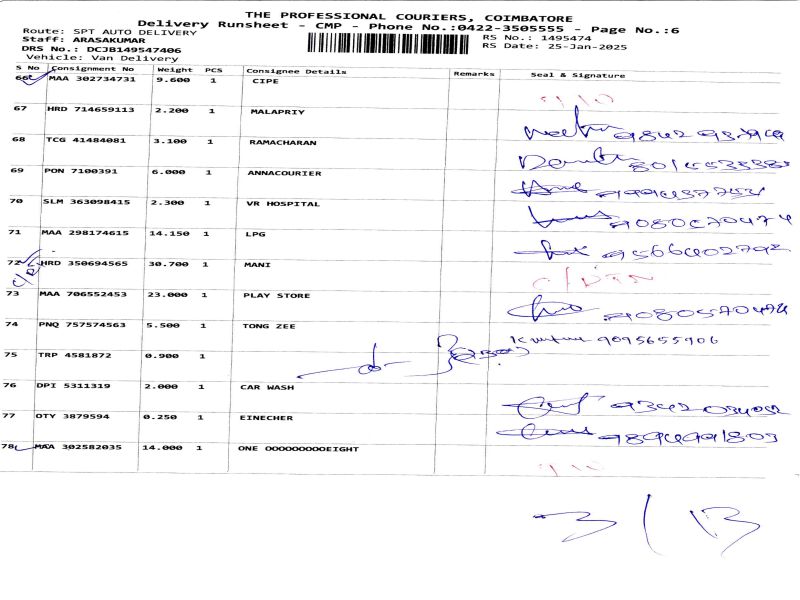 THE PROFESSIONAL COURIERS, COIMBATORE
Delivery Runsheet - CMP - Phone No.:0422-3505555 - Page No.:6
Route: SPT AUTO DELIVERY
Staff: ARASAKUMAR RS No.: 1495474
DRS No.: DCJB149547406 RS Date: 25-Jan-2025
Vehicle: Van Delivery
S No Consignment No Weight PCS Consignee Details Remarks Seal & Signature
66 MAA 302734731 9.600 1 CIPE
67 HRD 714659113 2.200 1 MALAPRIY
68 TCG 41484081 3.100 1 RAMACHARAN
69 PON 7100391 6.000 1 ANNACOURIER
70 SLM 363098415 2.300 1 VR HOSPITAL
71 MAA 298174615 14.150 1 LPG
72 HRD 350694565 30.700 1 MANI
73 MAA 706552453 23.000 1 PLAY STORE
74 PNQ 757574563 5.500 1 TONG ZEE 9095655906
75 TRP 4581872 0.900 1
76 DPI 5311319 2.000 1 CAR WASH
77 OTY 3879594 0.250 1 EINECHER
78 MAA 302582035 14.000 1 ONE OOOOOOOOOEIGHT
3/13